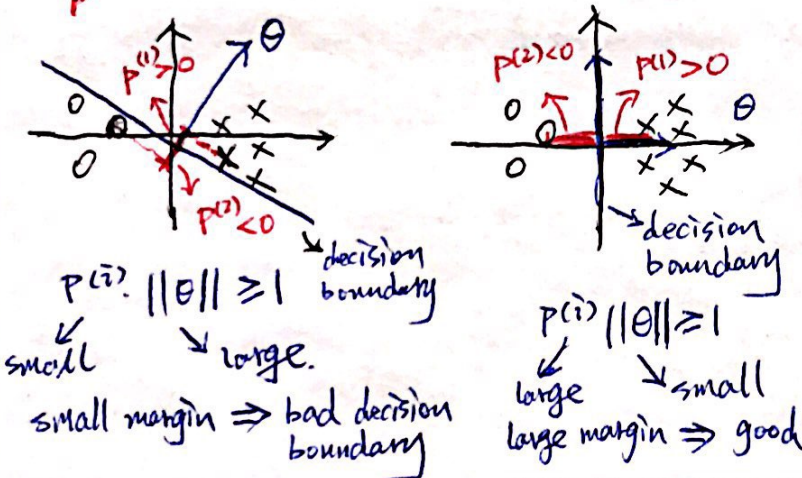 θ
p(1)>0
p(2)<0
decision
boundary
p(i). ||θ|| ≥ 1
small
large.
small margin ⇒ bad decision
boundary
p(2)<0
p(1)>0
θ
decision
boundary
p(i) ||θ|| ≥ 1
large
small
large margin ⇒ good